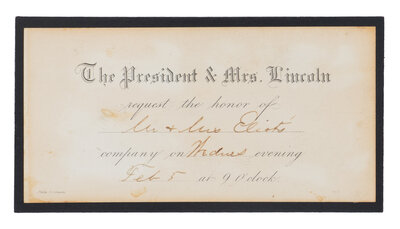 The President & Mrs. Lincoln
request the honor of
Mr & Mrs Eliot's
company on Wednes evening
Feb 5 at 9 O'clock.